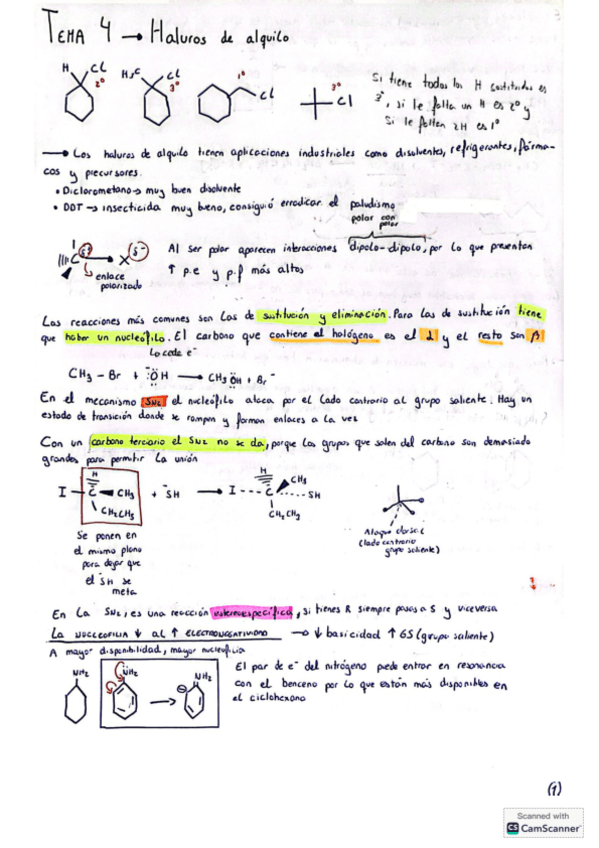 TEMA 4 → Haluros de alquilo
H Cl 2º H₃C Cl 3º 1º Cl 3º Cl
Si tiene todos los H sustituidos es
3º, si le falta un H es 2º y
Si le faltan 2H es 1º
→ Los haluros de alquilo tienen aplicaciones industriales como disolventes, refrigerantes, fárma-
cos y precursores.
• Diclorometano → muy buen disolvente
• DDT → insecticida muy bueno, consiguió erradicar el paludismo
polar con
polar
C δ+ X δ-
enlace
polarizado
Al ser polar aparecen interacciones dipolo-dipolo, por lo que presentan
↑ p.e y p.f más altos
Las reacciones más comunes son las de sustitución y eliminación. Para las de sustitución tiene
que haber un nucleófilo. El carbono que contiene el halógeno es el α y el resto son β
Lo cede e⁻
CH₃ - Br + ⁻:ÖH → CH₃ÖH + Br⁻
En el mecanismo SN2 el nucleófilo ataca por el lado contrario al grupo saliente. Hay un
estado de transición donde se rompen y forman enlaces a la vez
Con un carbono terciario el SN2 no se da, porque los grupos que salen del carbono son demasiado
grandes para permitir la unión
H H
I - C CH₃ + ⁻SH → I --- C CH₃ SH
CH₂CH₃ CH₂CH₃
Ataque dorsal
(lado contrario
grupo saliente)
Se ponen en
el mismo plano
para dejar que
el ⁻SH se
meta
En la SN2, es una reacción estereoespecífica, si tienes R siempre pasas a S y viceversa
La NUCLEOFILIA ↓ al ↑ ELECTRONEGATIVIDAD → ↓ basicidad ↑ GS (grupo saliente)
A mayor disponibilidad, mayor nucleofilia
NH₂ NH₂ NH₂
El par de e⁻ del nitrógeno puede entrar en resonancia
con el benceno por lo que están más disponibles en
el ciclohexano
(1)
Scanned with
CS CamScanner